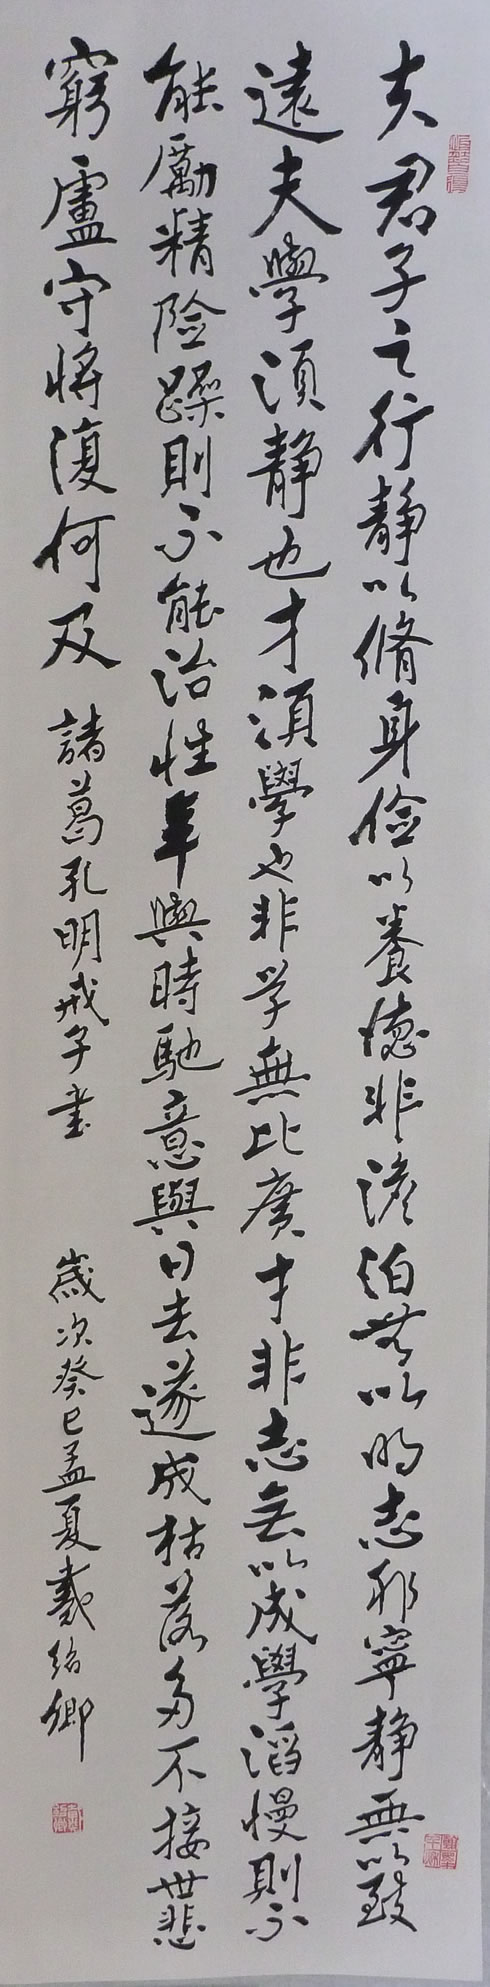 夫君子之行静以脩身俭以養德非澹泊無以明志非寧静無以致
遠夫學須静也才須學也非学無比廣才非志無以成學滔慢則不
能勵精险躁則不能治性年與時馳意與日去遂成枯落多不接世悲
窮盧守将復何及
諸葛孔明戒子書
歲次癸巳孟夏戴绍卿